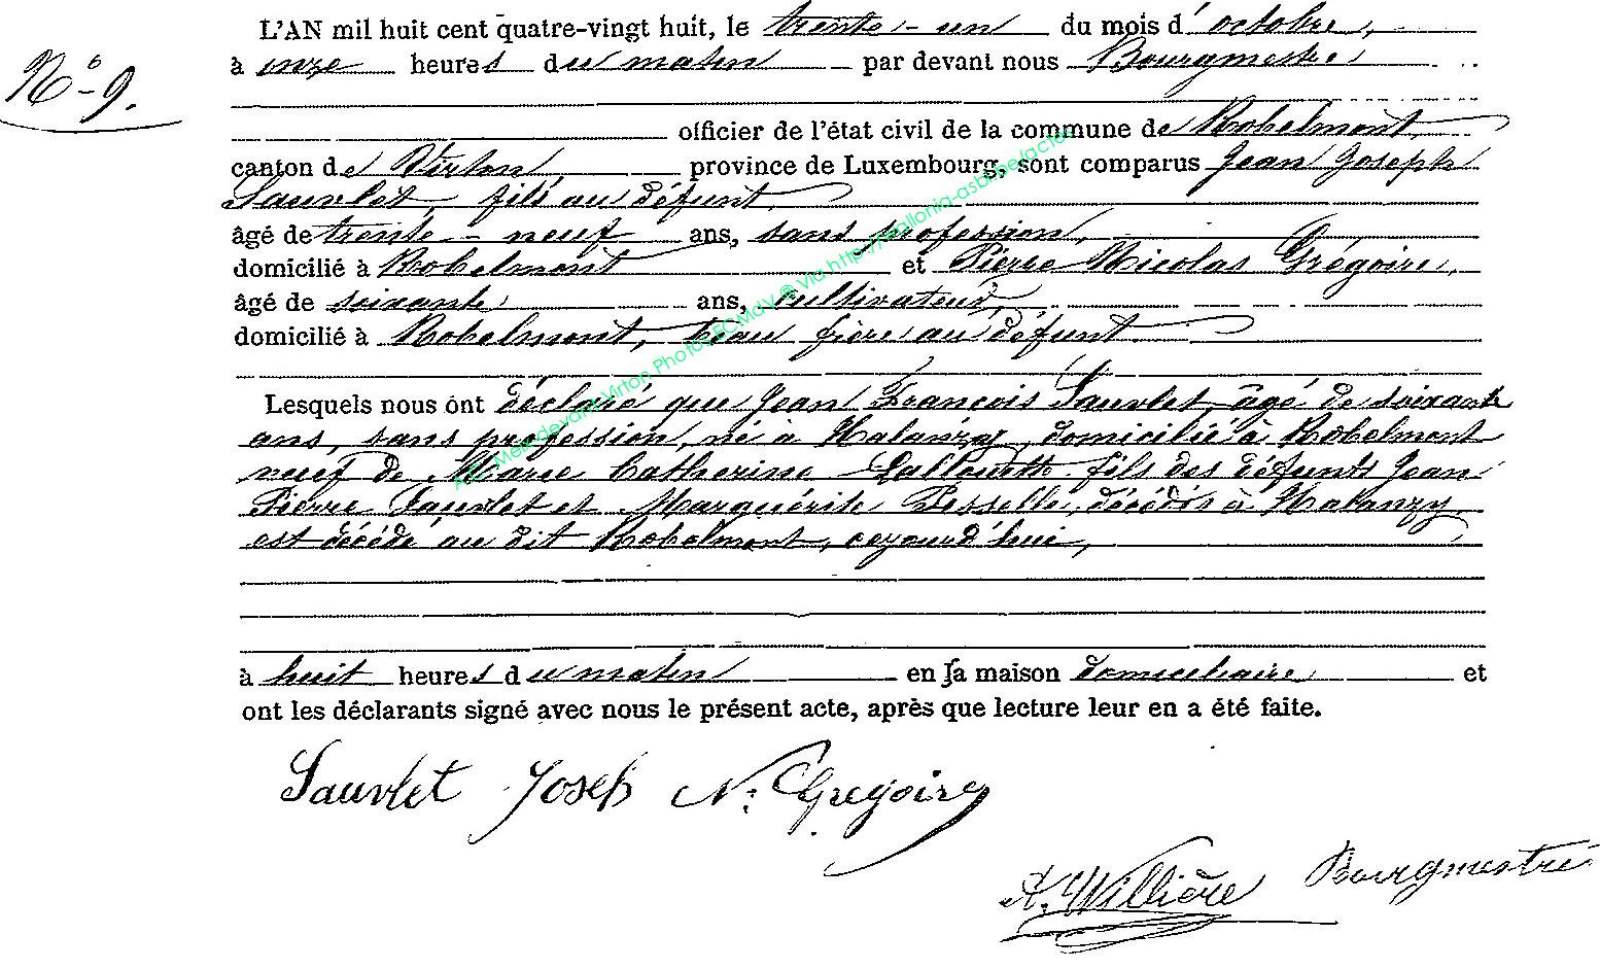 L'AN mil huit cent quatre-vingt huit, le trente-un du mois d'octobre,
à onze heures du matin par devant nous Bourgmestre
N° 9.
officier de l'état civil de la commune de Robelmont,
canton de Virton, province de Luxembourg, sont comparus Jean Joseph
Sauvlet, fils au défunt,
âgé de trente-neuf ans, sans profession,
domicilié à Robelmont et Pierre Nicolas Grégoire,
âgé de soixante ans, cultivateur,
domicilié à Robelmont, beau frère au défunt
Lesquels nous ont déclaré que Jean François Sauvlet, âgé de soixante
ans, sans profession, né à Halanzy, domicilié à Robelmont
veuf de Marie Catherine fils des défunts Jean
Pierre Sauvlet et Marguérite Tesselle, décédés à Halanzy,
est décédé au dit Robelmont, cejourd'hui,
à huit heures du matin en la maison domiciliaire et
ont les déclarants signé avec nous le présent acte, après que lecture leur en a été faite.
Sauvlet Joseph N. Gregoire
A. Willière Bourgmestre